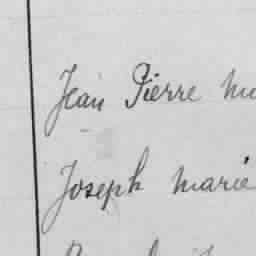 Jean Pierre
Joseph Marie